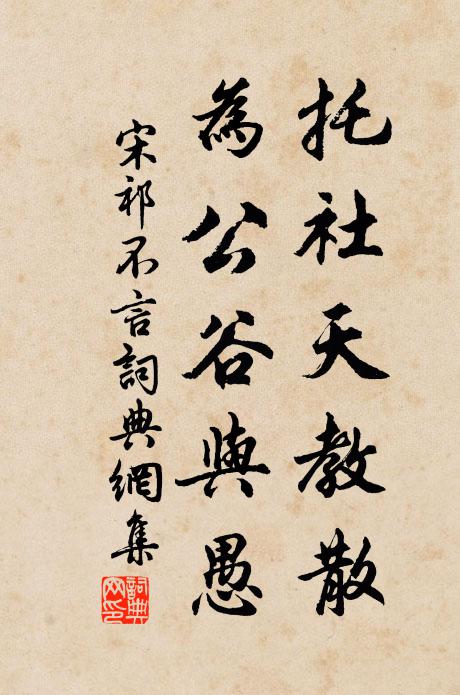 托社天教散
為公谷與愚
宋祁不言詞典網集
詞典網印